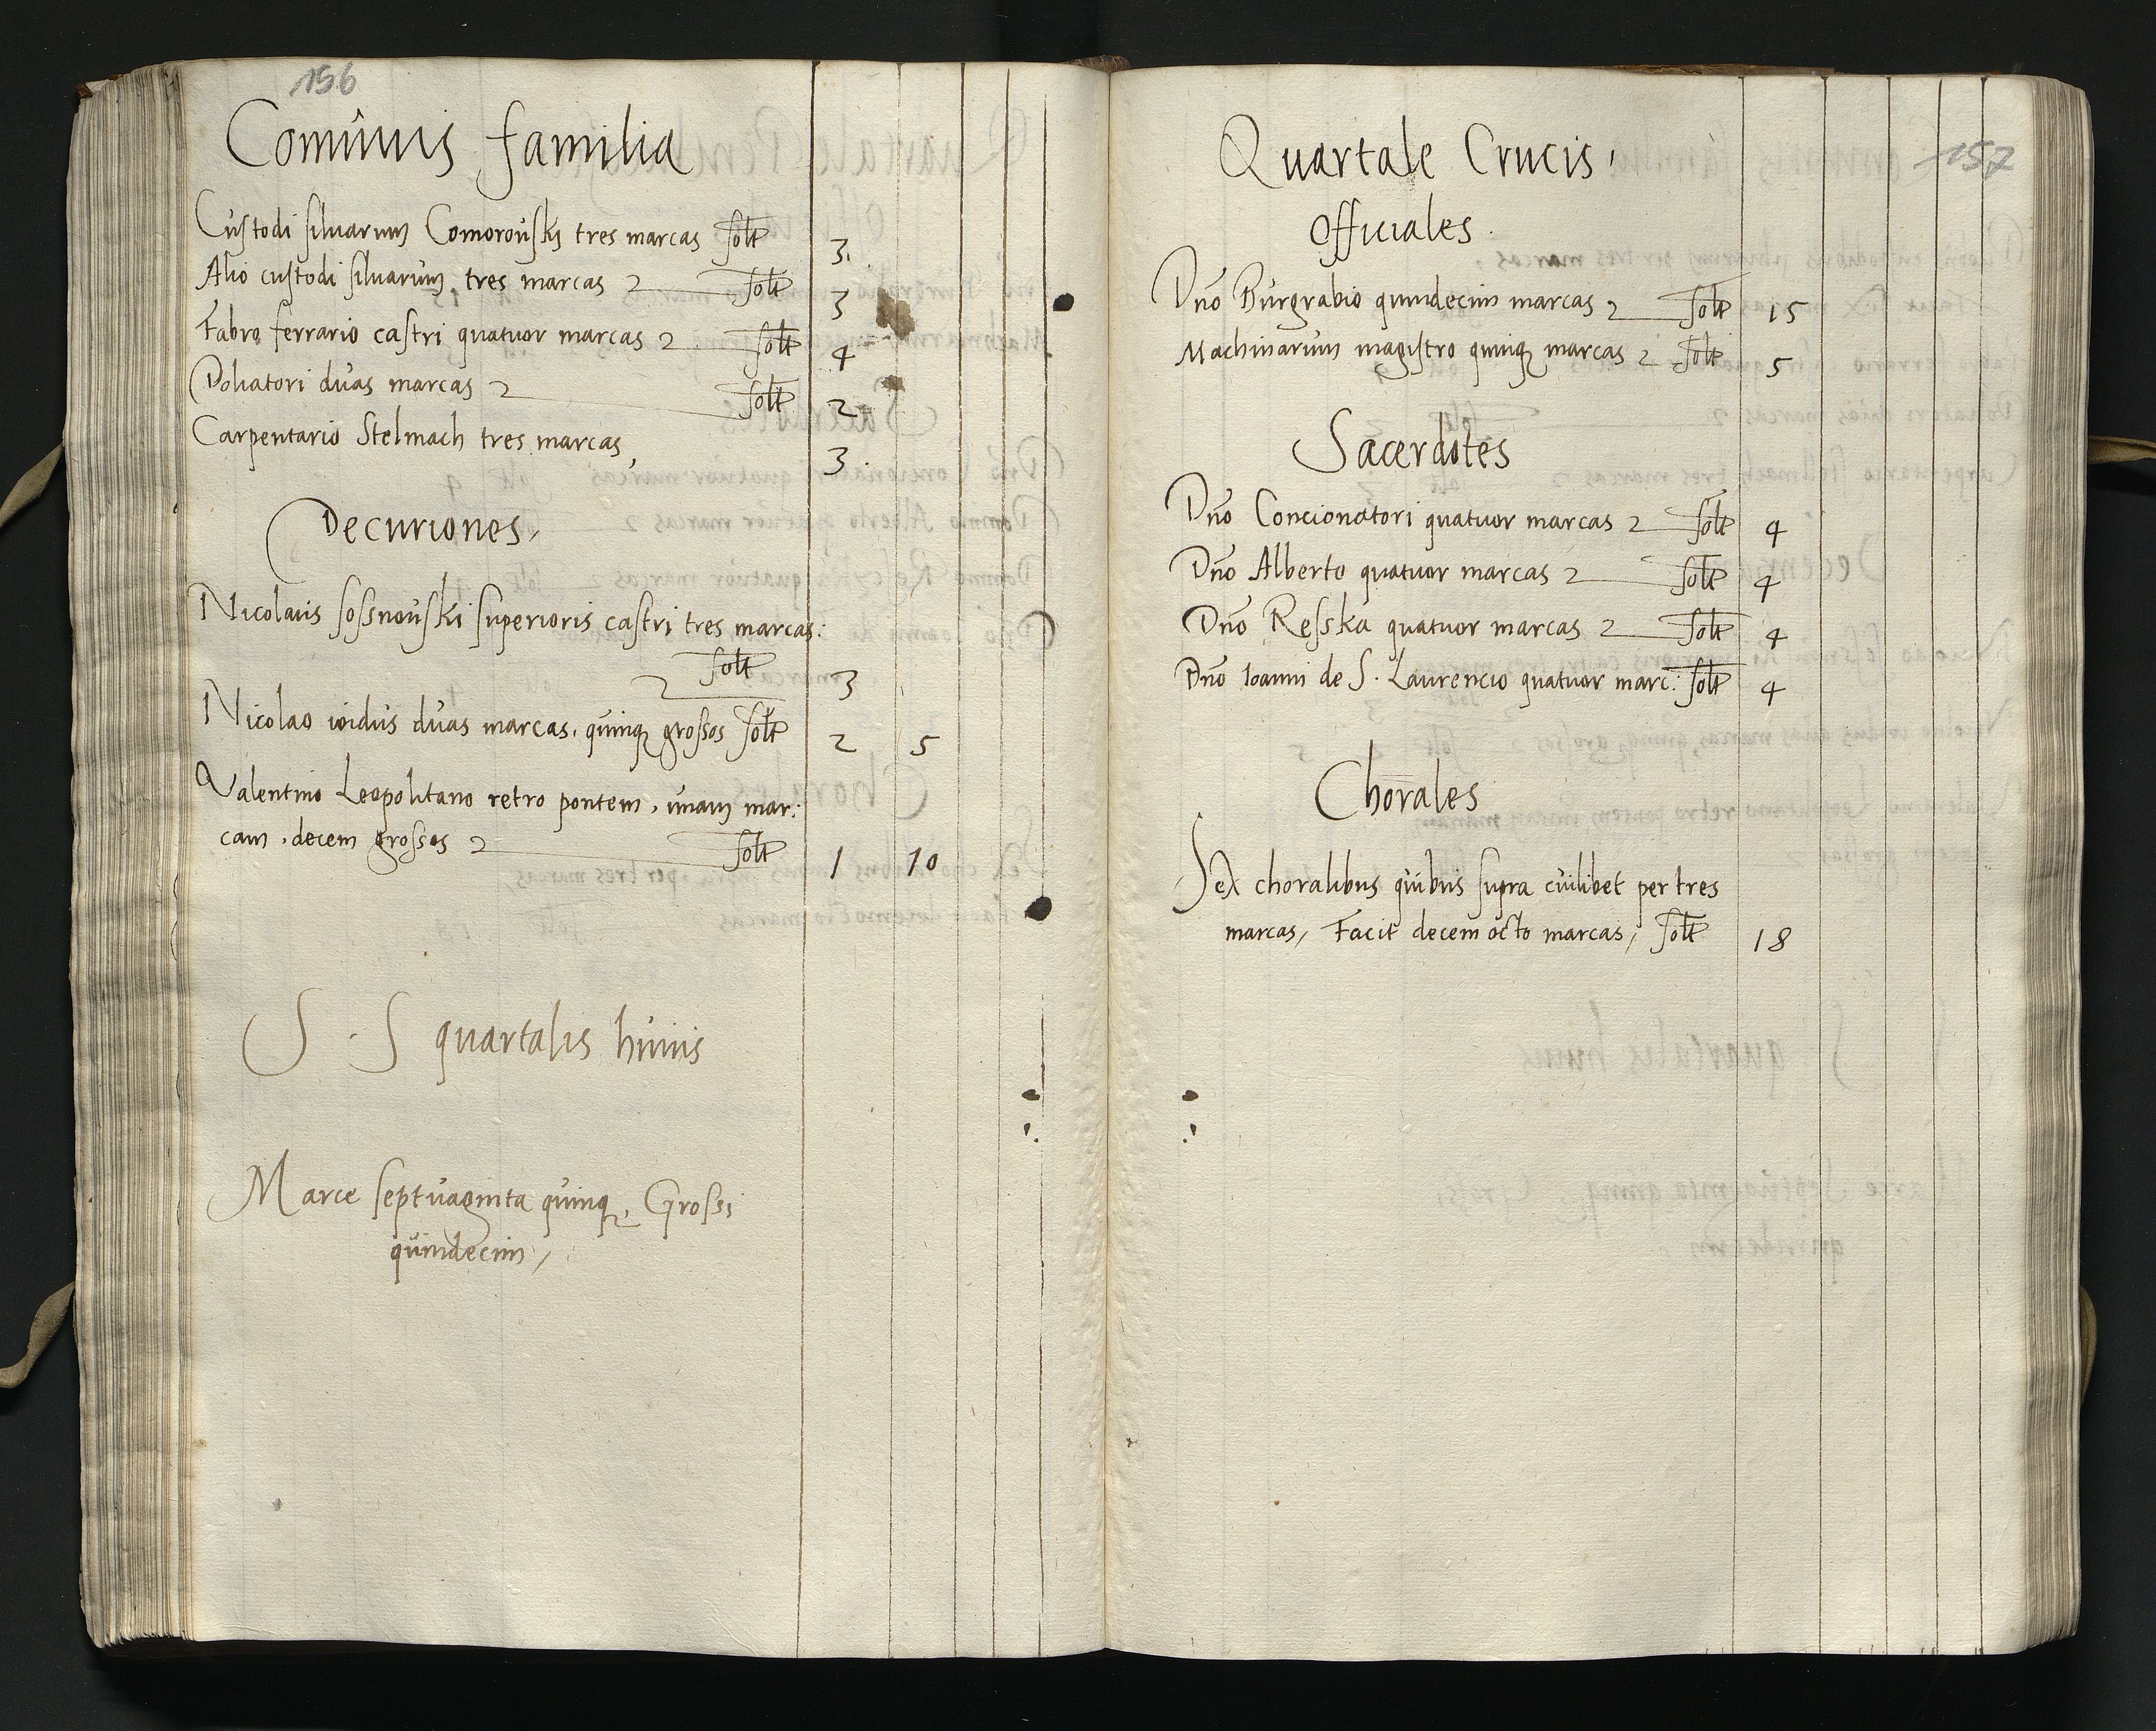 156
Comunis familia
Custodi silvarum Comorowski tres marcas solt 3.
Alio custodi silvarum tres marcas solt 3
Fabro ferrario castri quatuor marcas solt 4
Doliatori duas marcas solt 2
Carpentario Stelmach tres marcas, 3.
Decuriones,
Nicolaus sossnowski superioris castri tres marcas:
solt 3
Nicolao widus duas marcas, quinq grossos solt 2 5
Valentino Leopolitano retro pontem, unam mar:
cam, decem grossos solt 1 10
S. S quartalis huius
Marce septuaginta quinq, Grossi
quindecim,
157
Quartale Crucis,
Officiales.
Dno Burgrabio quindecim marcas solt 15
Machinarum magistro quinq marcas solt 5
Sacerdotes
Dno Concionatori quatuor marcas solt 4
Dno Alberto quatuor marcas solt 4
Dno Resska quatuor marcas solt 4
Dno Ioanni de S. Laurencio quatuor marc: solt 4
Chorales
Sex choralibus quibus supra cuilibet per tres
marcas, Facit decem octo marcas, solt 18